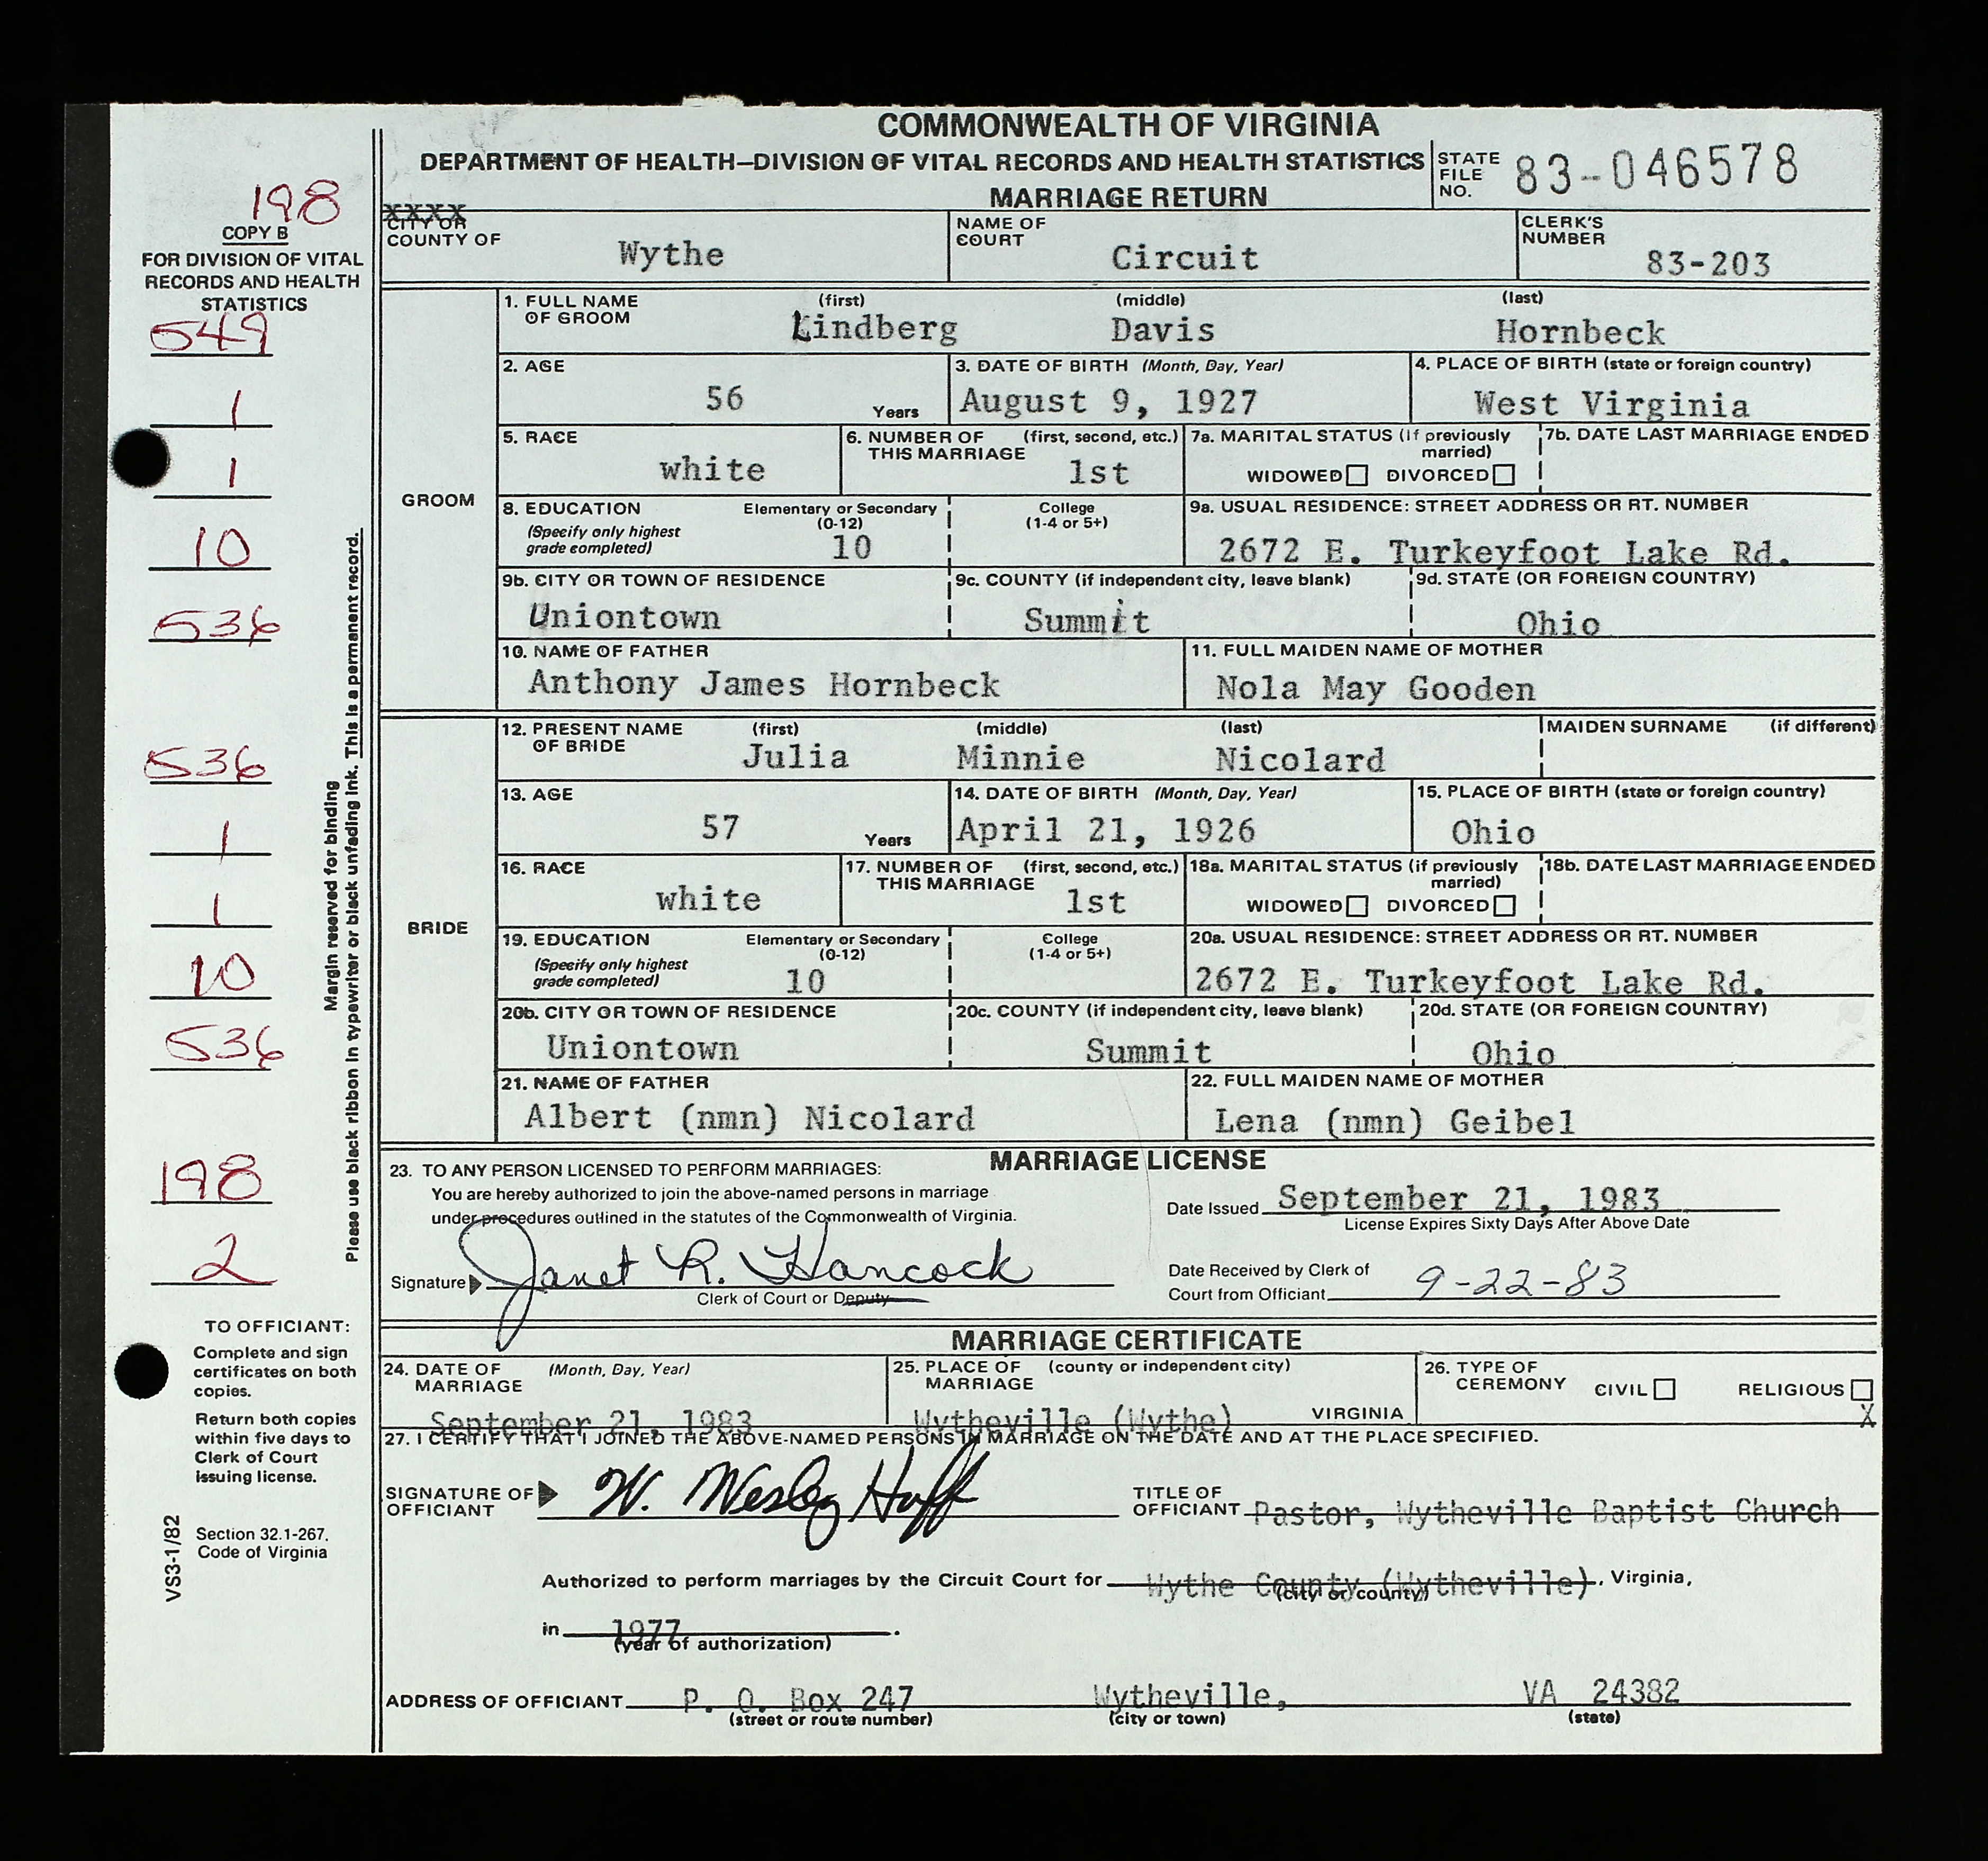 COMMONWEALTH OF VIRGINIA
DEPARTMENT OF HEALTH—DIVISION OF VITAL RECORDS AND HEALTH STATISTICS
MARRIAGE RETURN
STATE FILE NO. 83-046578
198
COPY B
FOR DIVISION OF VITAL
RECORDS AND HEALTH
STATISTICS
549
1
1
10
536
536
1
1
10
536
198
2
Margin reserved for binding
Please use black ribbon in typewriter or black unfading ink. This is a permanent record.
TO OFFICIANT:
Complete and sign
certificates on both
copies.
Return both copies
within five days to
Clerk of Court
issuing license.
Section 32.1-267,
Code of Virginia
VS3-1/82
XXXX
CITY OR
COUNTY OF Wythe
NAME OF COURT Circuit
CLERK'S NUMBER 83-203
GROOM
1. FULL NAME OF GROOM (first) (middle) (last)
Lindberg Davis Hornbeck
2. AGE 56 Years
3. DATE OF BIRTH (Month, Day, Year) August 9, 1927
4. PLACE OF BIRTH (state or foreign country) West Virginia
5. RACE white
6. NUMBER OF THIS MARRIAGE (first, second, etc.) 1st
7a. MARITAL STATUS (if previously married) WIDOWED DIVORCED
7b. DATE LAST MARRIAGE ENDED
8. EDUCATION (Specify only highest grade completed) Elementary or Secondary (0-12) 10
College (1-4 or 5+)
9a. USUAL RESIDENCE: STREET ADDRESS OR RT. NUMBER
2672 E. Turkeyfoot Lake Rd.
9b. CITY OR TOWN OF RESIDENCE Uniontown
9c. COUNTY (if independent city, leave blank) Summit
9d. STATE (OR FOREIGN COUNTRY) Ohio
10. NAME OF FATHER
Anthony James Hornbeck
11. FULL MAIDEN NAME OF MOTHER
Nola May Gooden
BRIDE
12. PRESENT NAME OF BRIDE (first) (middle) (last)
Julia Minnie Nicolard
MAIDEN SURNAME (if different)
13. AGE 57 Years
14. DATE OF BIRTH (Month, Day, Year) April 21, 1926
15. PLACE OF BIRTH (state or foreign country) Ohio
16. RACE white
17. NUMBER OF THIS MARRIAGE (first, second, etc.) 1st
18a. MARITAL STATUS (if previously married) WIDOWED DIVORCED
18b. DATE LAST MARRIAGE ENDED
19. EDUCATION (Specify only highest grade completed) Elementary or Secondary (0-12) 10
College (1-4 or 5+)
20a. USUAL RESIDENCE: STREET ADDRESS OR RT. NUMBER
2672 E. Turkeyfoot Lake Rd.
20b. CITY OR TOWN OF RESIDENCE Uniontown
20c. COUNTY (if independent city, leave blank) Summit
20d. STATE (OR FOREIGN COUNTRY) Ohio
21. NAME OF FATHER
Albert (nmn) Nicolard
22. FULL MAIDEN NAME OF MOTHER
Lena (nmn) Geibel
MARRIAGE LICENSE
23. TO ANY PERSON LICENSED TO PERFORM MARRIAGES:
You are hereby authorized to join the above-named persons in marriage
under procedures outlined in the statutes of the Commonwealth of Virginia.
Date Issued September 21, 1983
License Expires Sixty Days After Above Date
Signature Janet R. Hancock
Clerk of Court or Deputy
Date Received by Clerk of
Court from Officiant 9-22-83
MARRIAGE CERTIFICATE
24. DATE OF MARRIAGE (Month, Day, Year)
September 21, 1983
25. PLACE OF MARRIAGE (county or independent city)
Wytheville (Wythe) VIRGINIA
26. TYPE OF CEREMONY CIVIL RELIGIOUS X
27. I CERTIFY THAT I JOINED THE ABOVE-NAMED PERSONS IN MARRIAGE ON THE DATE AND AT THE PLACE SPECIFIED.
SIGNATURE OF OFFICIANT W. Wesley Huff
TITLE OF OFFICIANT Pastor, Wytheville Baptist Church
Authorized to perform marriages by the Circuit Court for Wythe County (Wytheville), Virginia,
(city or county)
in 1977.
(year of authorization)
ADDRESS OF OFFICIANT P. O. Box 247 Wytheville, VA 24382
(street or route number) (city or town) (state)